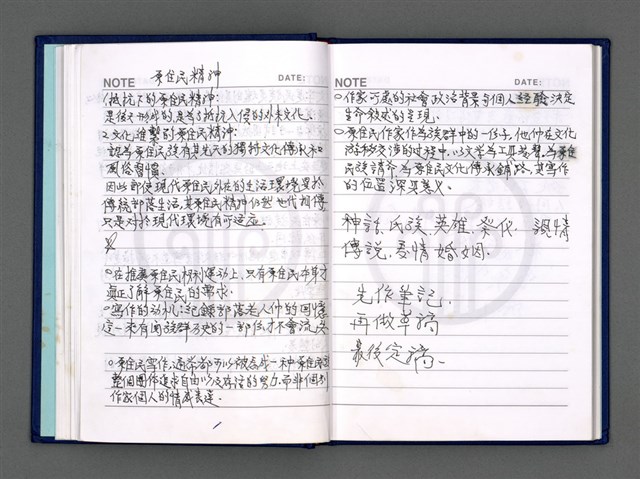 NOTE 原住民精神 DATE:
1.抵抗下的原住民精神:
是後天形成的,是為了抵抗入侵的外來文化。
2.文化進擊的原住民精神:
認為原住民族有其先天的獨特文化傳承和
風俗習慣。
因此即使現代原住民外在的生活環境異於
傳統部落生活,其原住民精神仍然世代相傳
只是對於現代環境有所適應。
○在推廣原住民權利運動上,只有原住民本身才
真正了解原住民的需求。
○寫作的動機:記錄部落老人們的回憶
定一來有關族群歷史的一部份才會流失
○原住民寫作,通常都可以被看成一種原住民
整個團體追求自由以及存活的努力,而非個別
作家個人的情感表達。
NOTE DATE:
○作家所處的社會政治背景與個人經驗決定
生命敘述的呈現。
○原住民作家作為族群中的一份子,他們在文化
游移交涉的過程中,以文學為工具發聲,為原住
民族請命,為原住民文化傳承鋪路,其寫作
的位置深具意義。
神話、民族、英雄、祭儀、調情
傳說、愛情婚姻.
先作筆記.
再做草稿
最後定稿.